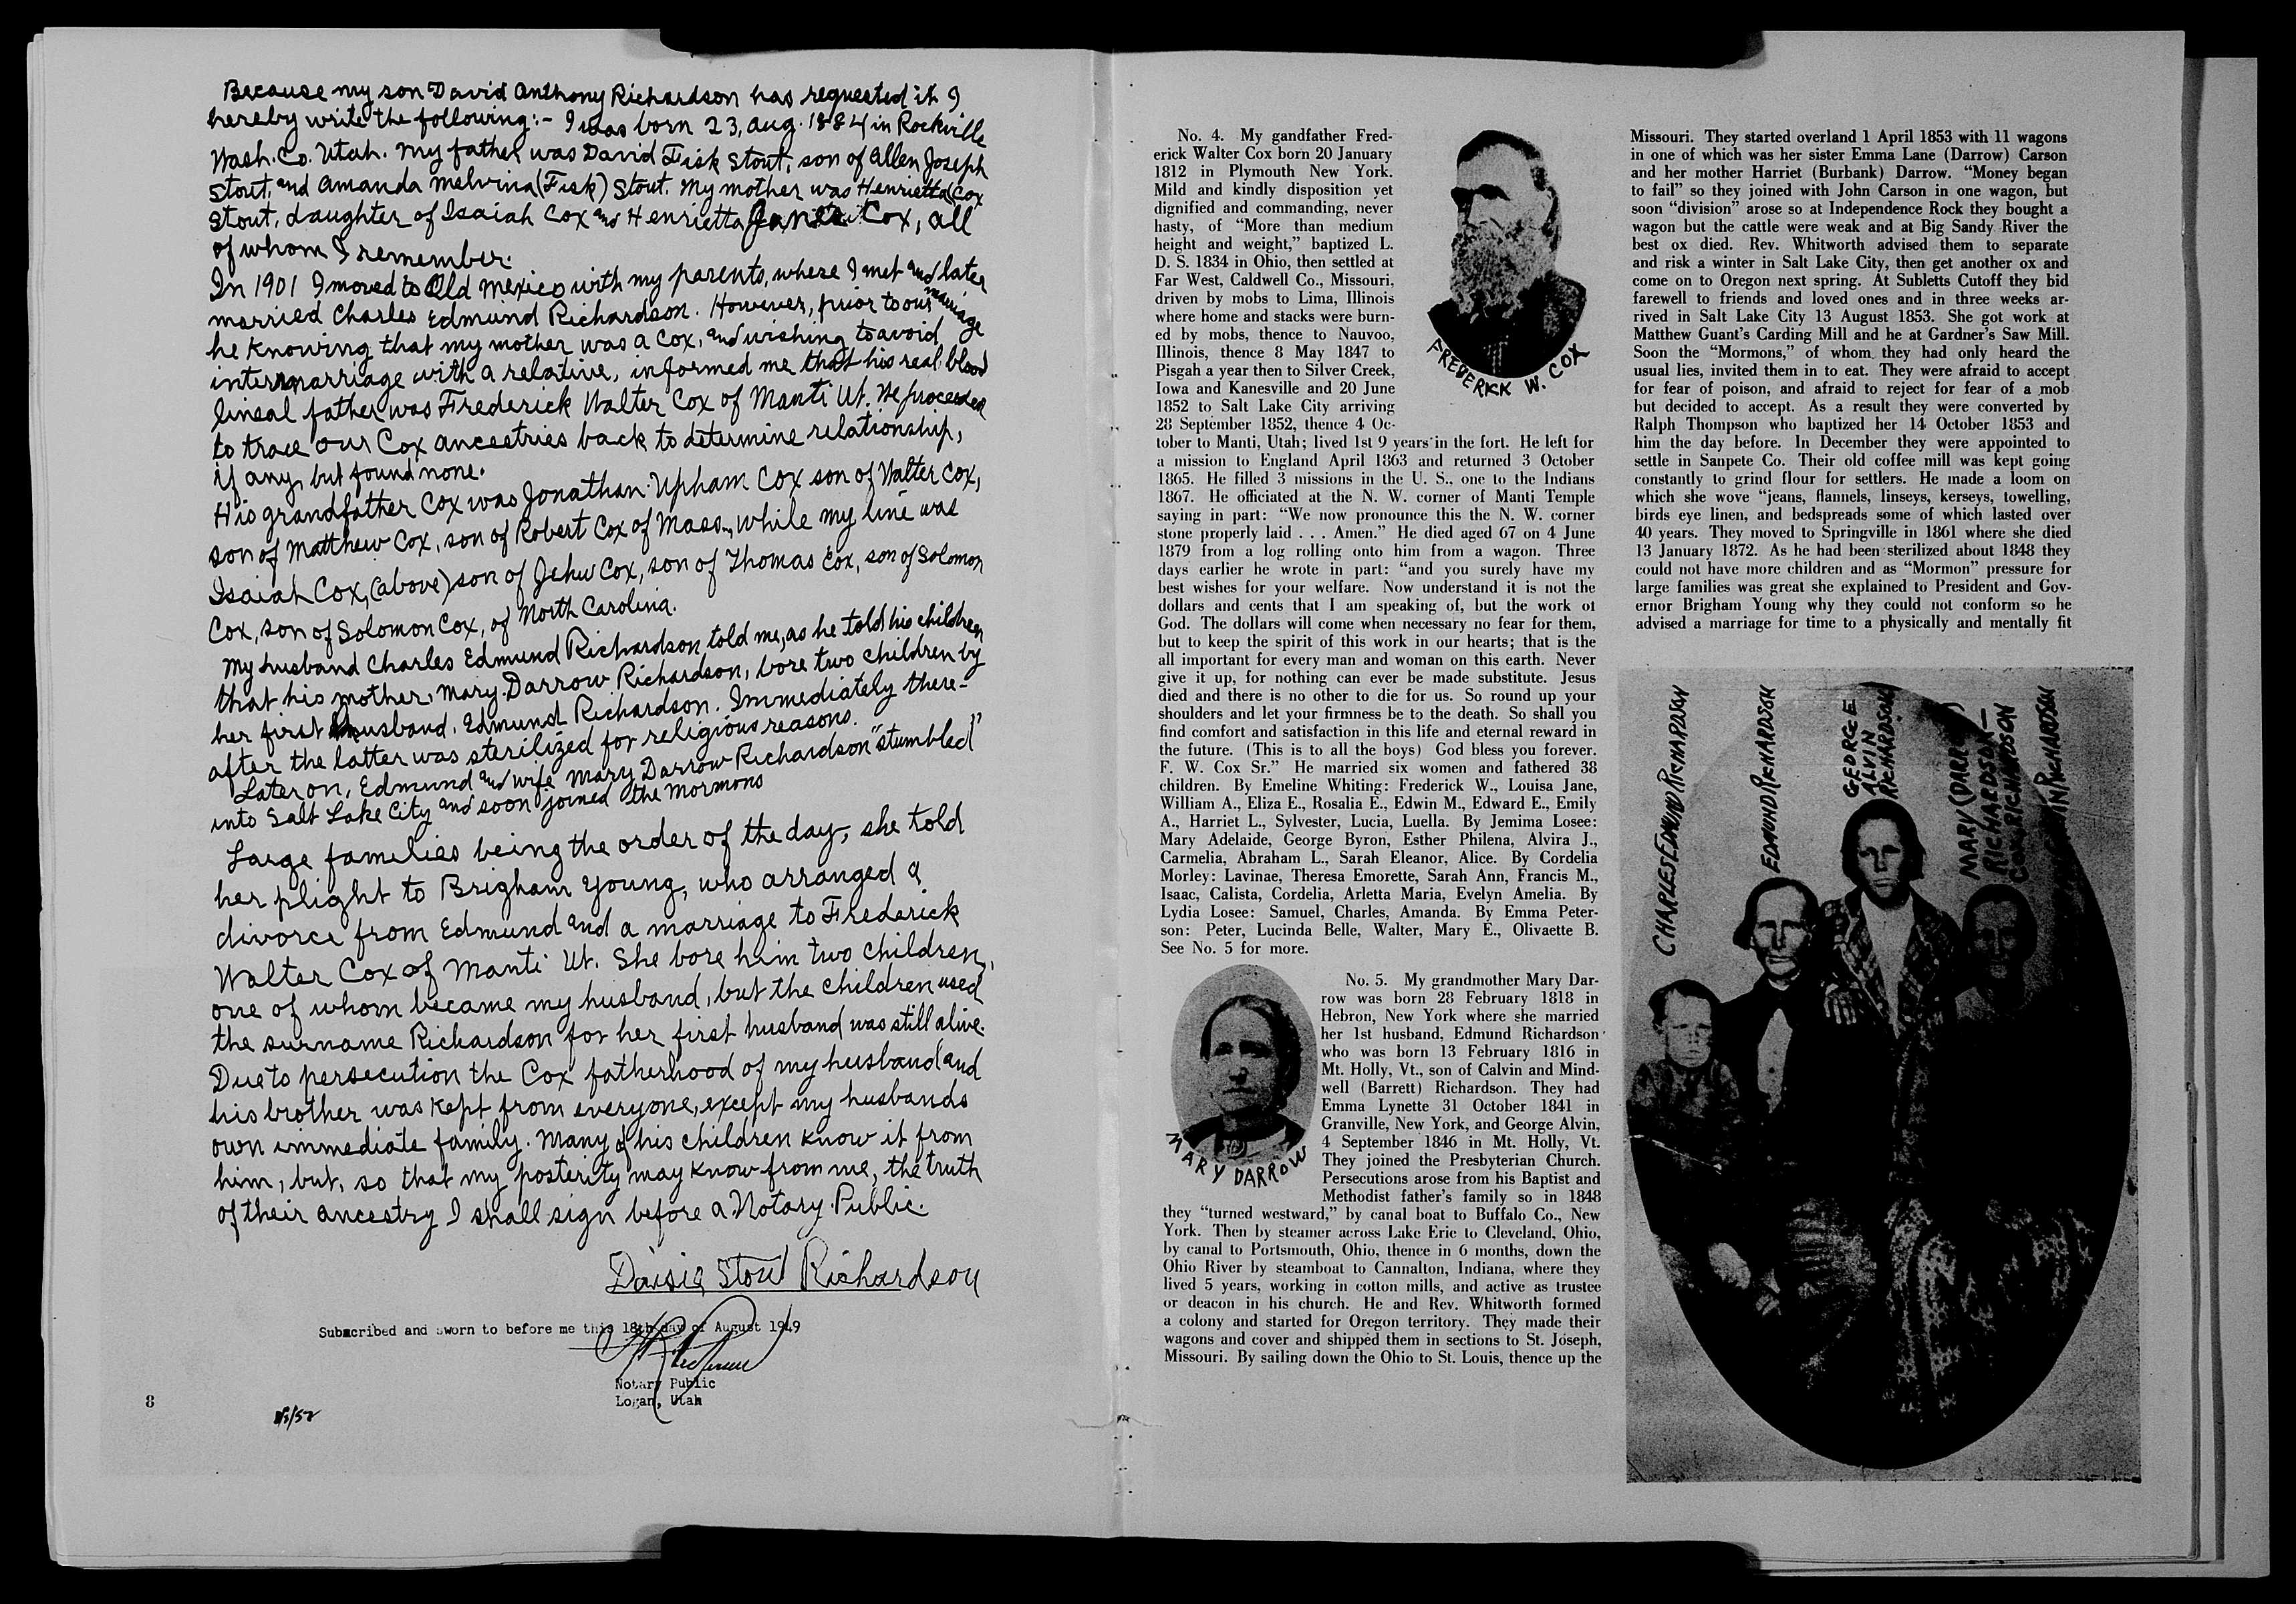 Because my son David Anthony Richardson has requested it I
hereby write the following:- I was born 23, Aug. 1884 in Rockville
Wash. Co. Utah. My father was David Fisk Stout, son of Allen Joseph
Stout, and Amanda Melvina (Fisk) Stout. My mother was Henrietta (Cox
Stout, daughter of Isaiah Cox and Henrietta Janes Cox, all
of whom I remember.
In 1901 I moved to Old Mexico with my parents, where I met and later
married Charles Edmund Richardson. However, prior to our marriage
he knowing that my mother was a Cox, and wishing to avoid
intermarriage with a relative, informed me that his real blood
lineal father was Frederick Walter Cox of Manti Ut. He proceeded
to trace our Cox ancestries back to determine relationship,
if any, but found none.
His grandfather Cox was Jonathan Upham Cox son of Walter Cox,
son of Matthew Cox, son of Robert Cox of Mass., while my line was
Isaiah Cox, (above) son of Jehu Cox, son of Thomas Cox, son of Solomon
Cox, son of Solomon Cox, of North Carolina.
My husband Charles Edmund Richardson told me, as he told his children
that his mother, Mary Darrow Richardson, bore two children by
her first husband, Edmund Richardson. Immediately there-
after the latter was sterilized for religious reasons.
Later on, Edmund and wife Mary Darrow Richardson "stumbled"
into Salt Lake City and soon joined the Mormons
Large families being the order of the day, she told
her plight to Brigham Young, who arranged a
divorce from Edmund and a marriage to Frederick
Walter Cox of Manti Ut. She bore him two children,
one of whom became my husband, but the children used
the surname Richardson for her first husband was still alive.
Due to persecution the Cox fatherhood of my husband and
his brother was kept from everyone, except my husbands
own immediate family. Many of his children know it from
him, but, so that my posterity may know from me, the truth
of their ancestry I shall sign before a Notary Public.
Daisie Stout Richardson
Subscribed and sworn to before me this 18th day of August 1949
Notary Public
Logan, Utah
8
No. 4. My gandfather Fred-
erick Walter Cox born 20 January
1812 in Plymouth New York.
Mild and kindly disposition yet
dignified and commanding, never
hasty, of “More than medium
height and weight,” baptized L.
D. S. 1834 in Ohio, then settled at
Far West, Caldwell Co., Missouri,
driven by mobs to Lima, Illinois
where home and stacks were burn-
ed by mobs, thence to Nauvoo,
Illinois, thence 8 May 1847 to
Pisgah a year then to Silver Creek,
Iowa and Kanesville and 20 June
1852 to Salt Lake City arriving
28 September 1852, thence 4 Oc-
tober to Manti, Utah; lived 1st 9 years in the fort. He left for
a mission to England April 1863 and returned 3 October
1865. He filled 3 missions in the U. S., one to the Indians
1867. He officiated at the N. W. corner of Manti Temple
saying in part: “We now pronounce this the N. W. corner
stone properly laid . . . Amen.” He died aged 67 on 4 June
1879 from a log rolling onto him from a wagon. Three
days earlier he wrote in part: “and you surely have my
best wishes for your welfare. Now understand it is not the
dollars and cents that I am speaking of, but the work of
God. The dollars will come when necessary no fear for them,
but to keep the spirit of this work in our hearts; that is the
all important for every man and woman on this earth. Never
give it up, for nothing can ever be made substitute. Jesus
died and there is no other to die for us. So round up your
shoulders and let your firmness be to the death. So shall you
find comfort and satisfaction in this life and eternal reward in
the future. (This is to all the boys) God bless you forever.
F. W. Cox Sr.” He married six women and fathered 38
children. By Emeline Whiting: Frederick W., Louisa Jane,
William A., Eliza E., Rosalia E., Edwin M., Edward E., Emily
A., Harriet L., Sylvester, Lucia, Luella. By Jemima Losee:
Mary Adelaide, George Byron, Esther Philena, Alvira J.,
Carmelia, Abraham L., Sarah Eleanor, Alice. By Cordelia
Morley: Lavinae, Theresa Emorette, Sarah Ann, Francis M.,
Isaac, Calista, Cordelia, Arletta Maria, Evelyn Amelia. By
Lydia Losee: Samuel, Charles, Amanda. By Emma Peter-
son: Peter, Lucinda Belle, Walter, Mary E., Olivaette B.
See No. 5 for more.
FREDERICK W. COX
No. 5. My grandmother Mary Dar-
row was born 28 February 1818 in
Hebron, New York where she married
her 1st husband, Edmund Richardson
who was born 13 February 1816 in
Mt. Holly, Vt., son of Calvin and Mind-
well (Barrett) Richardson. They had
Emma Lynette 31 October 1841 in
Granville, New York, and George Alvin,
4 September 1846 in Mt. Holly, Vt.
They joined the Presbyterian Church.
Persecutions arose from his Baptist and
Methodist father’s family so in 1848
they “turned westward,” by canal boat to Buffalo Co., New
York. Then by steamer across Lake Eric to Cleveland, Ohio,
by canal to Portsmouth, Ohio, thence in 6 months, down the
Ohio River by steamboat to Cannalton, Indiana, where they
lived 5 years, working in cotton mills, and active as trustee
or deacon in his church. He and Rev. Whitworth formed
a colony and started for Oregon territory. They made their
wagons and cover and shipped them in sections to St. Joseph,
Missouri. By sailing down the Ohio to St. Louis, thence up the
MARY DARROW
Missouri. They started overland 1 April 1853 with 11 wagons
in one of which was her sister Emma Lane (Darrow) Carson
and her mother Harriet (Burbank) Darrow. “Money began
to fail” so they joined with John Carson in one wagon, but
soon “division” arose so at Independence Rock they bought a
wagon but the cattle were weak and at Big Sandy River the
best ox died. Rev. Whitworth advised them to separate
and risk a winter in Salt Lake City, then get another ox and
come on to Oregon next spring. At Subletts Cutoff they bid
farewell to friends and loved ones and in three weeks ar-
rived in Salt Lake City 13 August 1853. She got work at
Matthew Guant’s Carding Mill and he at Gardner’s Saw Mill.
Soon the “Mormons,” of whom they had only heard the
usual lies, invited them in to eat. They were afraid to accept
for fear of poison, and afraid to reject for fear of a mob
but decided to accept. As a result they were converted by
Ralph Thompson who baptized her 14 October 1853 and
him the day before. In December they were appointed to
settle in Sanpete Co. Their old coffee mill was kept going
constantly to grind flour for settlers. He made a loom on
which she wove “jeans, flannels, linseys, kerseys, towelling,
birds eye linen, and bedspreads some of which lasted over
40 years. They moved to Springville in 1861 where she died
13 January 1872. As he had been sterilized about 1848 they
could not have more children and as “Mormon” pressure for
large families was great she explained to President and Gov-
ernor Brigham Young why they could not conform so he
advised a marriage for time to a physically and mentally fit
CHARLES EDMUND RICHARDSON
EDMUND RICHARDSON
GEORGE
ALVIN
RICHARDSON
MARY (DARROW)
RICHARDSON—
COX RICHARDSON
RICHARDSON